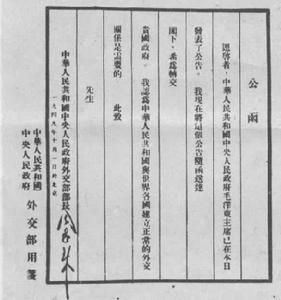 公函
逕啓者，中華人民共和國中央人民政府毛澤東主席已在本日
發表了公告。我現在將這個公告隨函送達
閣下，希為轉交
貴國政府。我認為中華人民共和國與世界各國建立正常的外交
關係是需要的　此致
先生
中華人民共和國中央人民政府外交部部長
一九四九年十月一日於北京
中華人民共和國
中央人民政府
外交部用箋